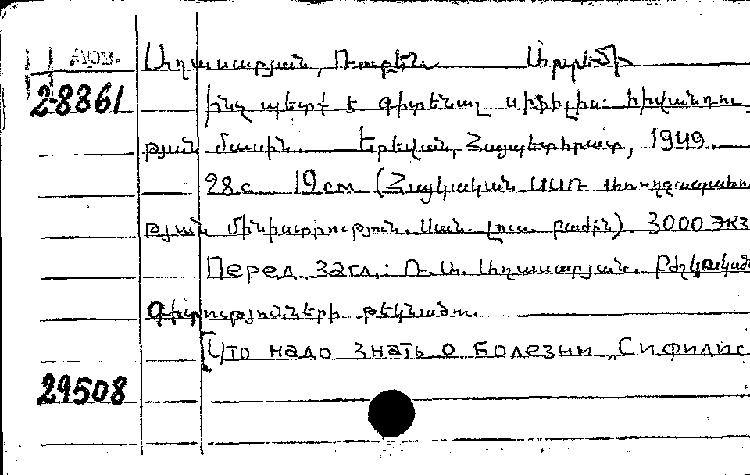 Арм. Աղասարյան, Ռուբեն
2-8861 Ինչ պետք է գիտենալ սիֆիլիս հիվանդու
թյան մասին. Երևան, Հայպետհրատ, 1949.
28 с. 19 см (Հայկական ՍՍՌ առողջապահու
թյան մինիստրություն. Սան. լուս. բաժին). 3000 экз
Перед загл.: Ռ. Ա. Աղասարյան. Բժշկական
Գիտությունների թեկնածու.
[Что надо знать о болезни „Сифилис
29508